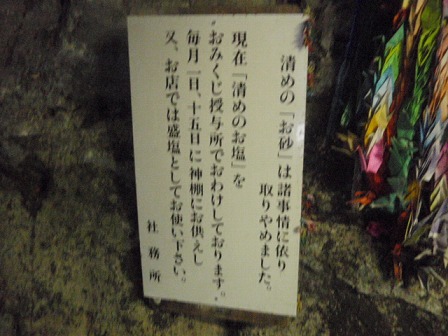 清めの『お砂』は諸事情に依り
取りやめました。
現在『清めのお塩』を
おみくじ授与所でおわけしております。
毎月一日、十五日に神棚にお供えし
又、お店では盛塩としてお使い下さい。
社務所